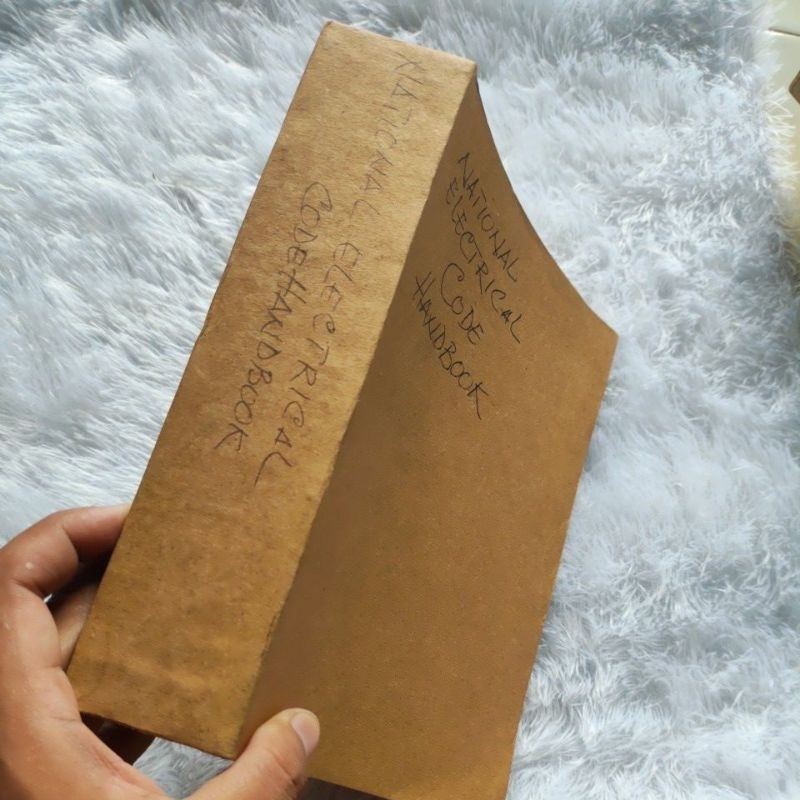 NATIONAL ELECTRICAL
CODE HANDBOOK
NATIONAL
ELECTRICAL
CODE
HANDBOOK